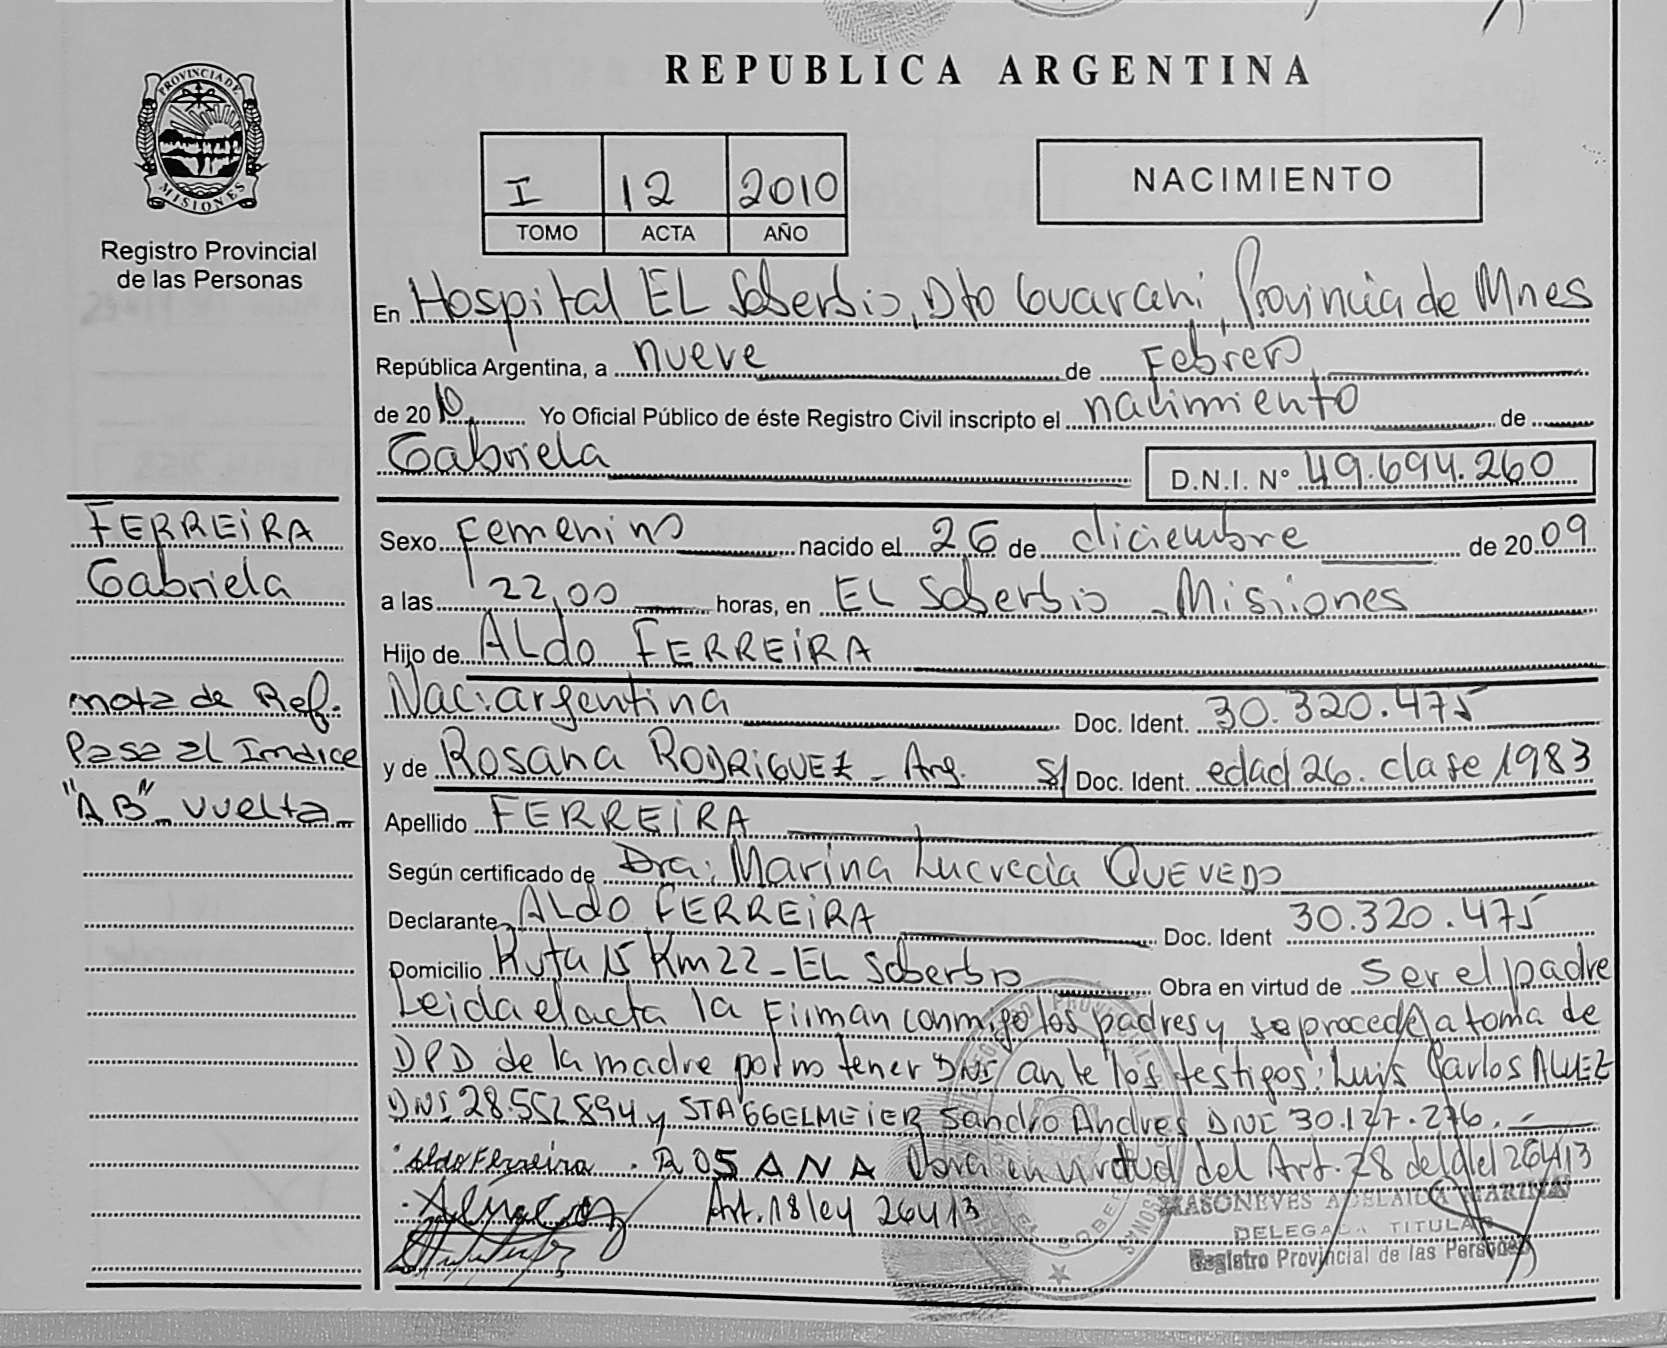 REPUBLICA ARGENTINA
PROVINCIA DE MISIONES
Registro Provincial
de las Personas
I 12 2010
TOMO ACTA AÑO
NACIMIENTO
En Hospital EL Soberbio, Dto Guarani, Provincia de Mnes
República Argentina, a nueve de Febrero
de 2010 Yo Oficial Público de éste Registro Civil inscripto el nacimiento de
Gabriela D.N.I. Nº 49.694.260
FERREIRA
Gabriela
nota de Ref.
Pasa al Indice
"AB" vuelta
Sexo Femenino nacido el 26 de diciembre de 2009
a las 22,00 horas, en EL Soberbio - Misiones
Hijo de ALdo FERREIRA
Nac: argentina Doc. Ident. 30.320.475
y de Rosana RODRIGUEZ - Arg. s/ Doc. Ident. edad 26. clase 1983
Apellido FERREIRA
Según certificado de Dra: Marina Lucrecia QUEVEDO
Declarante ALdo FERREIRA Doc. Ident 30.320.475
Domicilio Ruta 15 Km 22 - EL Soberbio Obra en virtud de ser el padre
Leida el acta la Firman conmigo los padres y se procede a toma de
DPD de la madre por no tener DNI ante los testigos: Luis Carlos
DNI 28.552.894 y STAGGELMEIER Sandro Andres DNI 30.127.276.
Aldo Ferreira . ROSANA Obra en virtud del Art. 28 del 26413
Art. 18 ley 26413
MASONEVES ADELAIDA MARINA
DELEGADA TITULAR
Registro Provincial de las Personas